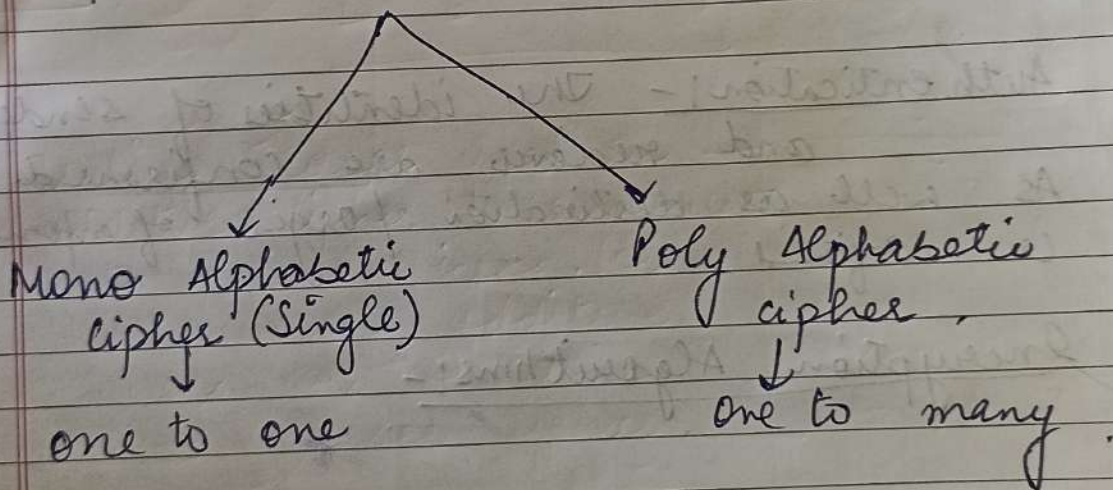 Mono Alphabetic
cipher (Single)
↓
one to one
Poly Alphabetic
cipher.
↓
one to many.